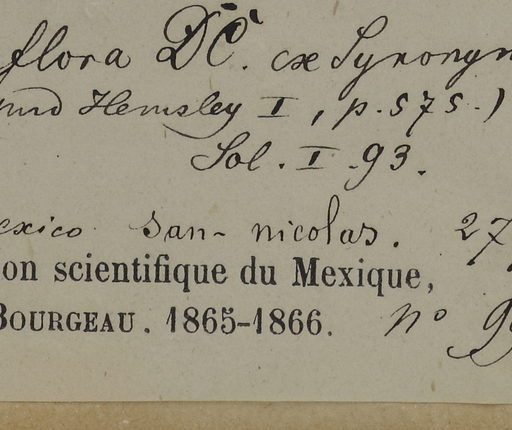 flora DC. ex Synonym
und Hemsley I, p. 575.)
Sol. I. 93.
exico san-nicolas. 27
on scientifique du Mexique,
BOURGEAU. 1865-1866. n°